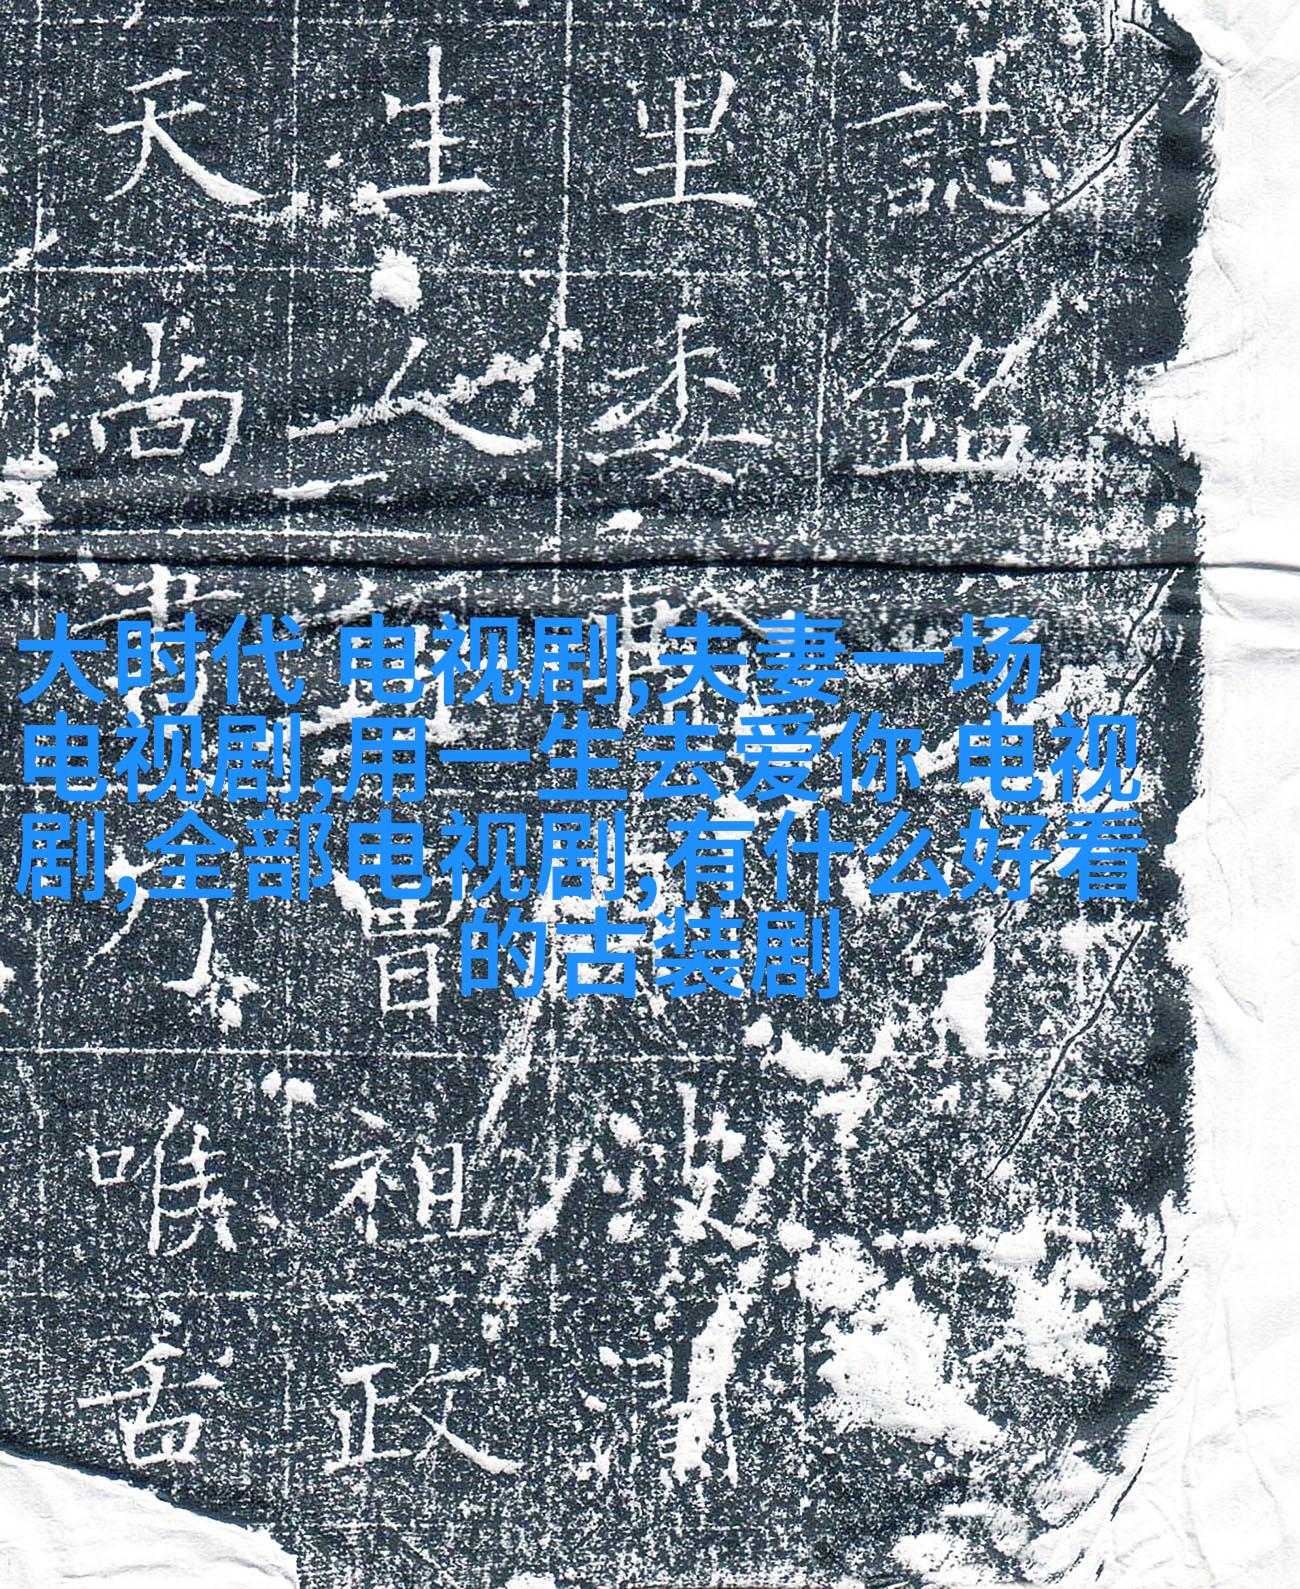 誌銘
里委
生人曾祖政
天尚書喉舌
大时代 电视剧,夫妻一场
电视剧,用一生去爱你 电视
剧,全部电视剧,有什么好看
的古装剧